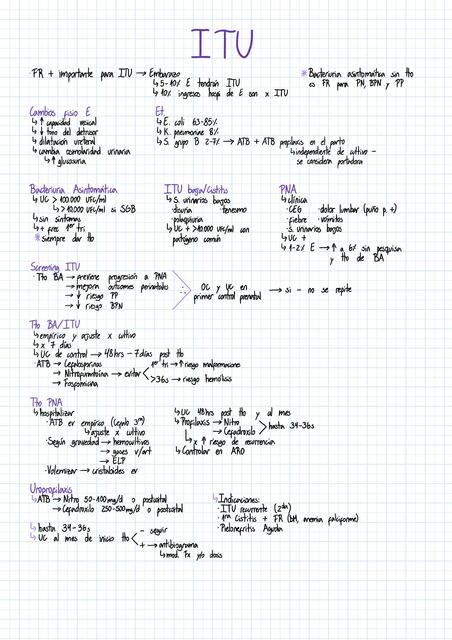 ITU
FR + importante para ITU → Embarazo
↳ 5-10% E tendrán ITU
↳ 10% ingresos hosp de E con x ITU
*Bacteriuria asintomática sin tto
es FR para PN, BPN y PP
Cambios fisio E
↳ ↑ capacidad vesical
↳ ↓ tono del detrusor
↳ dilatación ureteral
↳ cambia osmolaridad urinaria
↳ ↑ glucosuria
Et.
↳ E. coli 63-85%
↳ K. pneumoniae 8%
↳ S. grupo B 2-7% → ATB + ATB profilaxis en el parto
↳ independiente de cultivo -
se considera portadora
Bacteriuria Asintomática
↳ UC > 100.000 UFC/ml
↳ > 10.000 UFC/ml si SGB
↳ sin síntomas
↳ + frec 1er tri
*siempre dar tto
ITU baja/Cistitis
↳ S. urinarios bajos
·disuria ·tenesmo
·polaquiuria
↳ UC + >10.000 UFC/ml con
patógeno común
PNA
↳ clínica
·CEG ·dolor lumbar (puño p. +)
·fiebre ·vómitos
·S. urinarios bajos
↳ UC +
↳ 1-2% E → ↑ a 6% sin pesquisa
y tto de BA
Screening ITU
·Tto BA → previene progresión a PNA
→ mejora outcomes perinatales
→ ↓ riesgo PP
→ ↓ riesgo BPN
∴ OC y UC en
primer control prenatal → si - no se repite
Tto BA/ITU
↳ empírico y ajuste x cultivo
↳ x 7 días
↳ UC de control → 48hrs - 7días post tto
·ATB → Cefalosporinas
→ Nitrofurantoína → evitar < 1er tri → ↑ riesgo malformaciones
>36s → riesgo hemólisis
→ Fosfomicina
Tto PNA
↳ hospitalizar
·ATB ev empírico (Cefalo 3ra)
↳ ajuste x cultivo
·Según gravedad → hemocultivos
→ gases v/art
→ ELP
·Volemizar → cristaloides ev
↳ UC 48hrs post tto y al mes
↳ Profilaxis → Nitro
→ Cefadroxilo > hasta 34-36s
↳ x ↑ riesgo de recurrencia
↳ Controlar en ARO
Uroprofilaxis
↳ ATB → Nitro 50-100mg/d o postcoital
→ Cefadroxilo 250-500mg/d o postcoital
↳ hasta 34-36s
↳ UC al mes de inicio tto < - seguir
+ → antibiograma
↳ mod. Fx y/o dosis
↳ Indicaciones:
·ITU recurrente (2da)
·1ra Cistitis + FR (DM, anemia falciforme)
·Pielonefritis Aguda